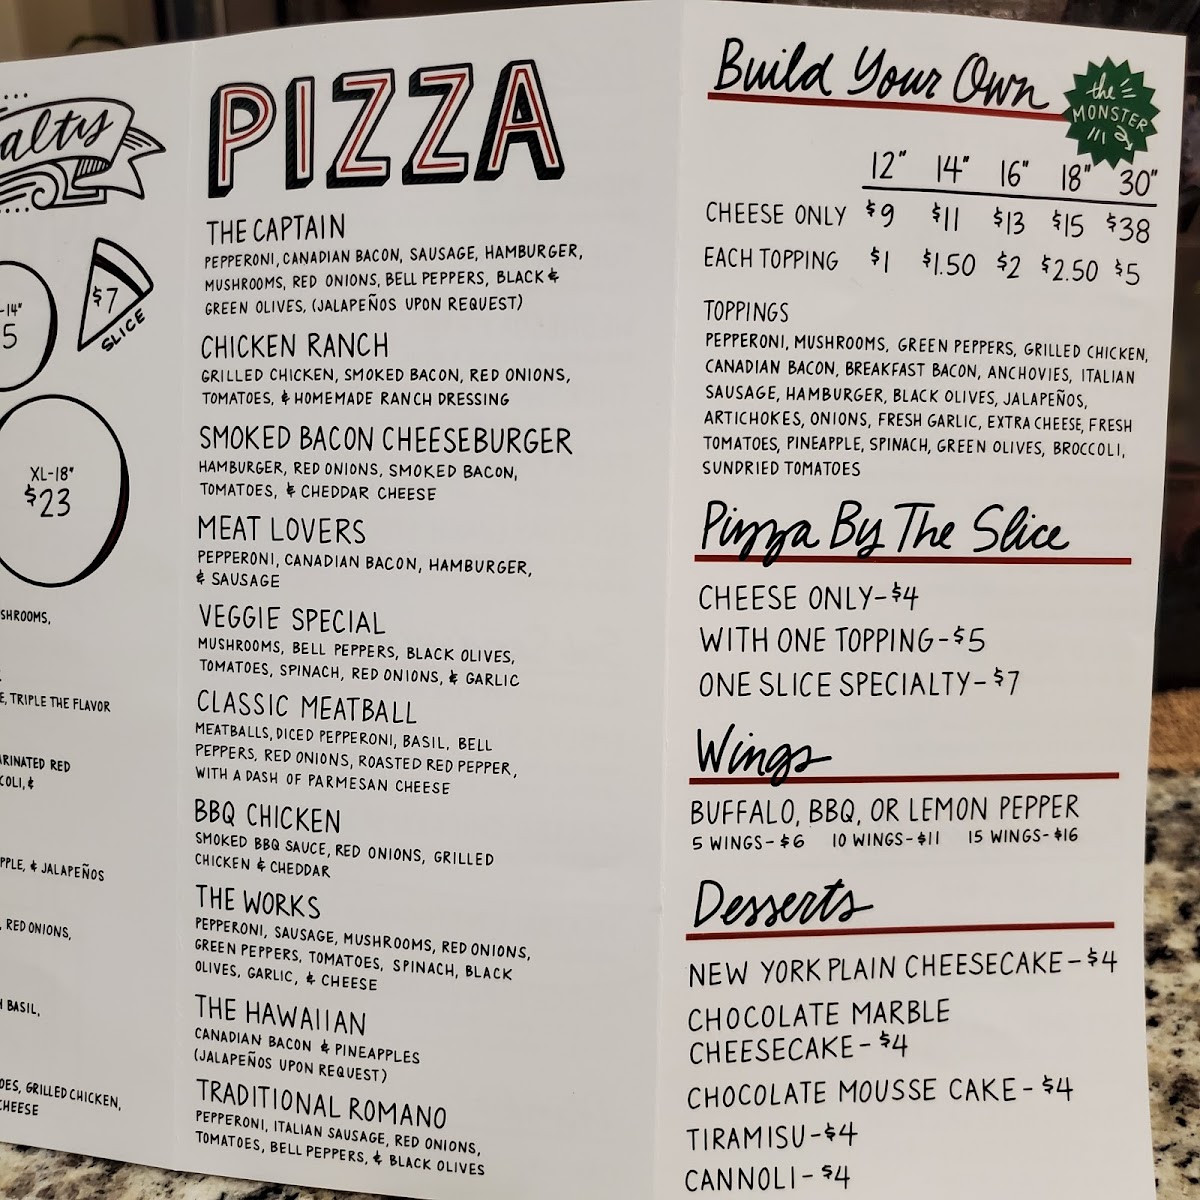 alty
$7
SLICE
-14"
5
XL-18"
$23
SHROOMS,
E, TRIPLE THE FLAVOR
ARINATED RED
COLI, &
PPLE, & JALAPEÑOS
, RED ONIONS,
H BASIL,
OES, GRILLED CHICKEN,
CHEESE
PIZZA
THE CAPTAIN
PEPPERONI, CANADIAN BACON, SAUSAGE, HAMBURGER,
MUSHROOMS, RED ONIONS, BELL PEPPERS, BLACK &
GREEN OLIVES, (JALAPEÑOS UPON REQUEST)
CHICKEN RANCH
GRILLED CHICKEN, SMOKED BACON, RED ONIONS,
TOMATOES, & HOMEMADE RANCH DRESSING
SMOKED BACON CHEESEBURGER
HAMBURGER, RED ONIONS, SMOKED BACON,
TOMATOES, & CHEDDAR CHEESE
MEAT LOVERS
PEPPERONI, CANADIAN BACON, HAMBURGER,
& SAUSAGE
VEGGIE SPECIAL
MUSHROOMS, BELL PEPPERS, BLACK OLIVES,
TOMATOES, SPINACH, RED ONIONS, & GARLIC
CLASSIC MEATBALL
MEATBALLS, DICED PEPPERONI, BASIL, BELL
PEPPERS, RED ONIONS, ROASTED RED PEPPER,
WITH A DASH OF PARMESAN CHEESE
BBQ CHICKEN
SMOKED BBQ SAUCE, RED ONIONS, GRILLED
CHICKEN & CHEDDAR
THE WORKS
PEPPERONI, SAUSAGE, MUSHROOMS, RED ONIONS,
GREEN PEPPERS, TOMATOES, SPINACH, BLACK
OLIVES, GARLIC, & CHEESE
THE HAWAIIAN
CANADIAN BACON & PINEAPPLES
(JALAPEÑOS UPON REQUEST)
TRADITIONAL ROMANO
PEPPERONI, ITALIAN SAUSAGE, RED ONIONS,
TOMATOES, BELL PEPPERS, & BLACK OLIVES
Build Your Own
the
MONSTER
12" 14" 16" 18" 30"
CHEESE ONLY $9 $11 $13 $15 $38
EACH TOPPING $1 $1.50 $2 $2.50 $5
TOPPINGS
PEPPERONI, MUSHROOMS, GREEN PEPPERS, GRILLED CHICKEN,
CANADIAN BACON, BREAKFAST BACON, ANCHOVIES, ITALIAN
SAUSAGE, HAMBURGER, BLACK OLIVES, JALAPEÑOS,
ARTICHOKES, ONIONS, FRESH GARLIC, EXTRA CHEESE, FRESH
TOMATOES, PINEAPPLE, SPINACH, GREEN OLIVES, BROCCOLI,
SUNDRIED TOMATOES
Pizza By The Slice
CHEESE ONLY-$4
WITH ONE TOPPING-$5
ONE SLICE SPECIALTY-$7
Wings
BUFFALO, BBQ, OR LEMON PEPPER
5 WINGS-$6 10 WINGS-$11 15 WINGS-$16
Desserts
NEW YORK PLAIN CHEESECAKE-$4
CHOCOLATE MARBLE
CHEESECAKE-$4
CHOCOLATE MOUSSE CAKE-$4
TIRAMISU-$4
CANNOLI-$4